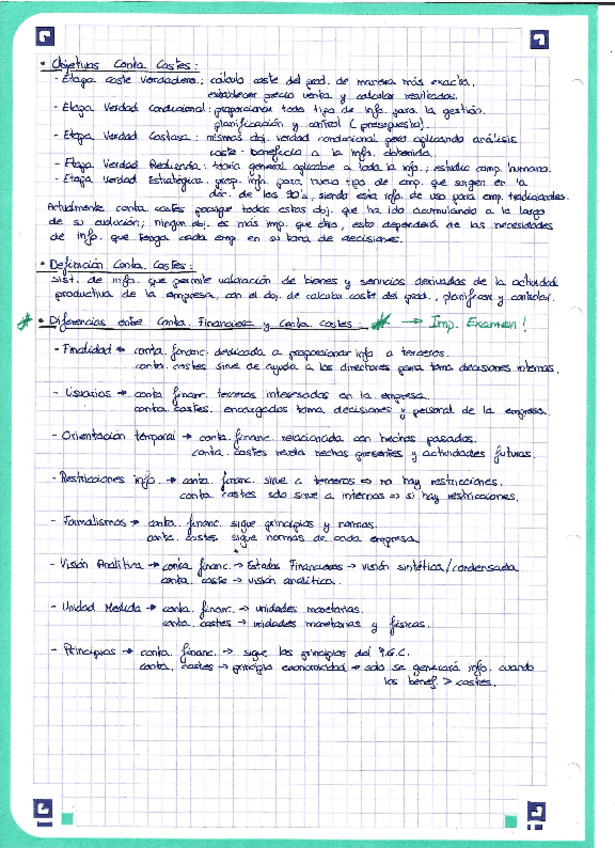 • Objetivos Conta. Costes:
- Etapa coste verdadero: cálculo coste del prod. de manera más exacta,
establecer precio venta y calcular resultados.
- Etapa Verdad Condicional: proporcionar todo tipo de info. para la gestión,
planificación y control (presupuesto).
- Etapa Verdad Costosa: mismos obj. verdad condicional pero aplicando análisis
coste-beneficio a la info. obtenida.
- Etapa Verdad Reducida: teoría general aplicable a toda la info.; estudio comp. humano.
- Etapa Verdad Estratégica: prep. info. para nuevo tipo de emp. que surgen en la
déc. de los 90's, siendo esta info. de uso para emp. tradicionales.
Actualmente conta. costes persigue todos estos obj. que ha ido acumulando a lo largo
de su evolución; ningún obj. es más imp. que otro, esto dependerá de las necesidades
de info. que tenga cada emp. en su toma de decisiones.
• Definición Conta. Costes:
Sist. de info. que permite valoración de bienes y servicios derivados de la actividad
productiva de la empresa, con el obj. de calcular coste del prod., planificar y controlar.
* • Diferencias entre Conta. Financiera y Conta Costes: * → Imp. Examen!
- Finalidad → conta. financ. dedicada a proporcionar info a terceros.
conta. costes sirve de ayuda a los directores para toma decisiones internas.
- Usuarios → conta financ. terceros interesados en la empresa.
conta costes. encargados toma decisiones y personal de la empresa.
- Orientación temporal → conta. financ. relacionada con hechos pasados.
conta. costes revela hechos presentes y actividades futuras.
- Restricciones info. → conta. financ. sirve a terceros ⇒ no hay restricciones.
conta costes solo sirve a internos ⇒ si hay restricciones.
- Formalismos → conta. financ. sigue principios y normas.
conta. costes sigue normas de cada empresa
- Visión Analítica → conta financ. → Estados Financieros → visión sintética/condensada
conta. coste → visión analítica.
- Unidad Medida → conta. financ. → unidades monetarias.
conta. costes → unidades monetarias y físicas.
- Principios → conta. financ. → sigue los principios del P.G.C.
conta. costes → principio economicidad → solo se generará info. cuando
los benef. > costes.